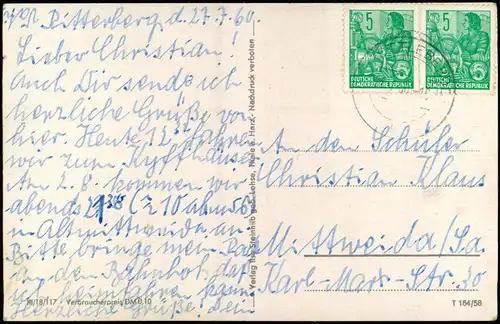 Ritterberg, d. 27.7.60.
Lieber Christian!
Auch Dir sende ich
herzliche Grüße von
hier. Heute
wir zum Kyffhäuser
Am 2.8. kommen wir
abends 21³⁸
in Altmittweida an.
Bitte bringe mein Rad
an den Bahnhof, daß
ich heimfahren kann.
Herzliche Grüße Dein
III/18/117 Verbraucherpreis DM 0.10
Nachdruck verboten
5
DEUTSCHE
DEMOKRATISCHE REPUBLIK
5
DEUTSCHE
DEMOKRATISCHE REPUBLIK
An den Schüler
Christian Klaus
Mittweida/Sa.
Karl-Marx-Str. 30
T 164/58